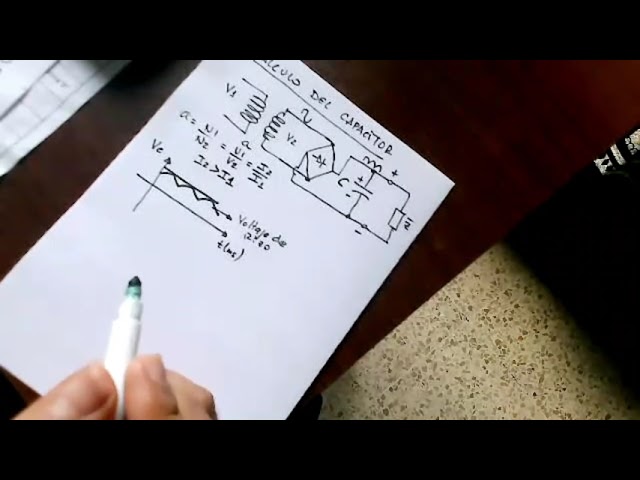 CALCULO DEL CAPACITOR
V1
V2
a = N1/N2 = V1/V2 = I2/I1
I2 > I1
C
+
-
+
-
Vc
Voltaje de
rizo
t(ms)